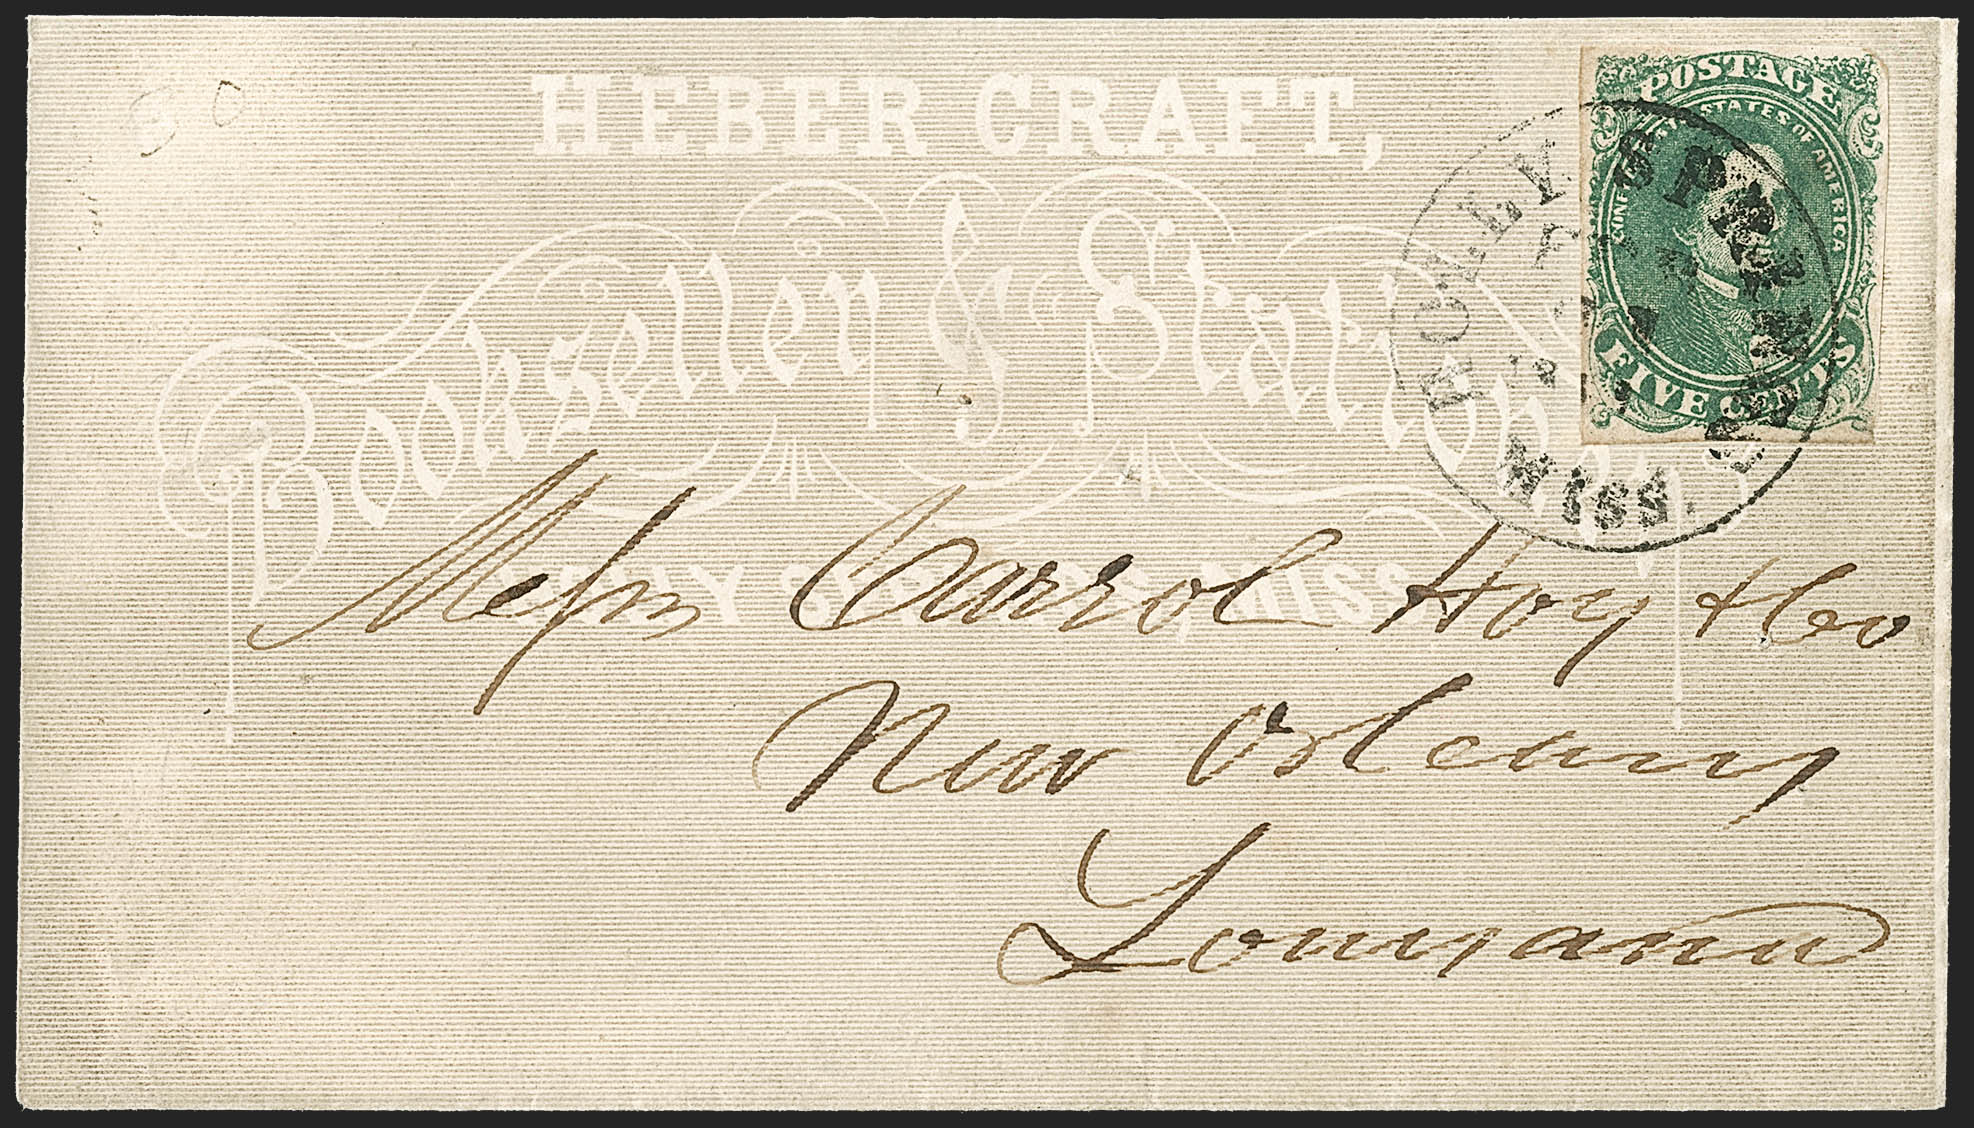 HEBER CRAFT,
Bookseller & Stationer,
HOLLY SPRINGS, MISS.
POSTAGE
CONFEDERATE STATES OF AMERICA
FIVE CENTS
HOLLY SPRINGS
MISS.
Messrs Carrol Hoy & Co
New Orleans
Louisiana